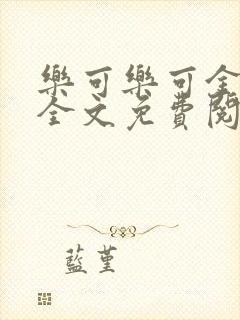 樂可樂可全
全文免費閱
藍堇